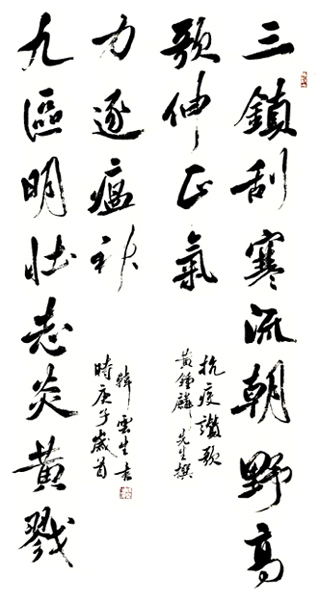 三鎮刮寒流朝野高
歌伸正氣
抗疫讚歌
黄鍾麟先生撰
九區明壯志炎黄戮
力逐瘟神
時庚子歲首
韓雲生書